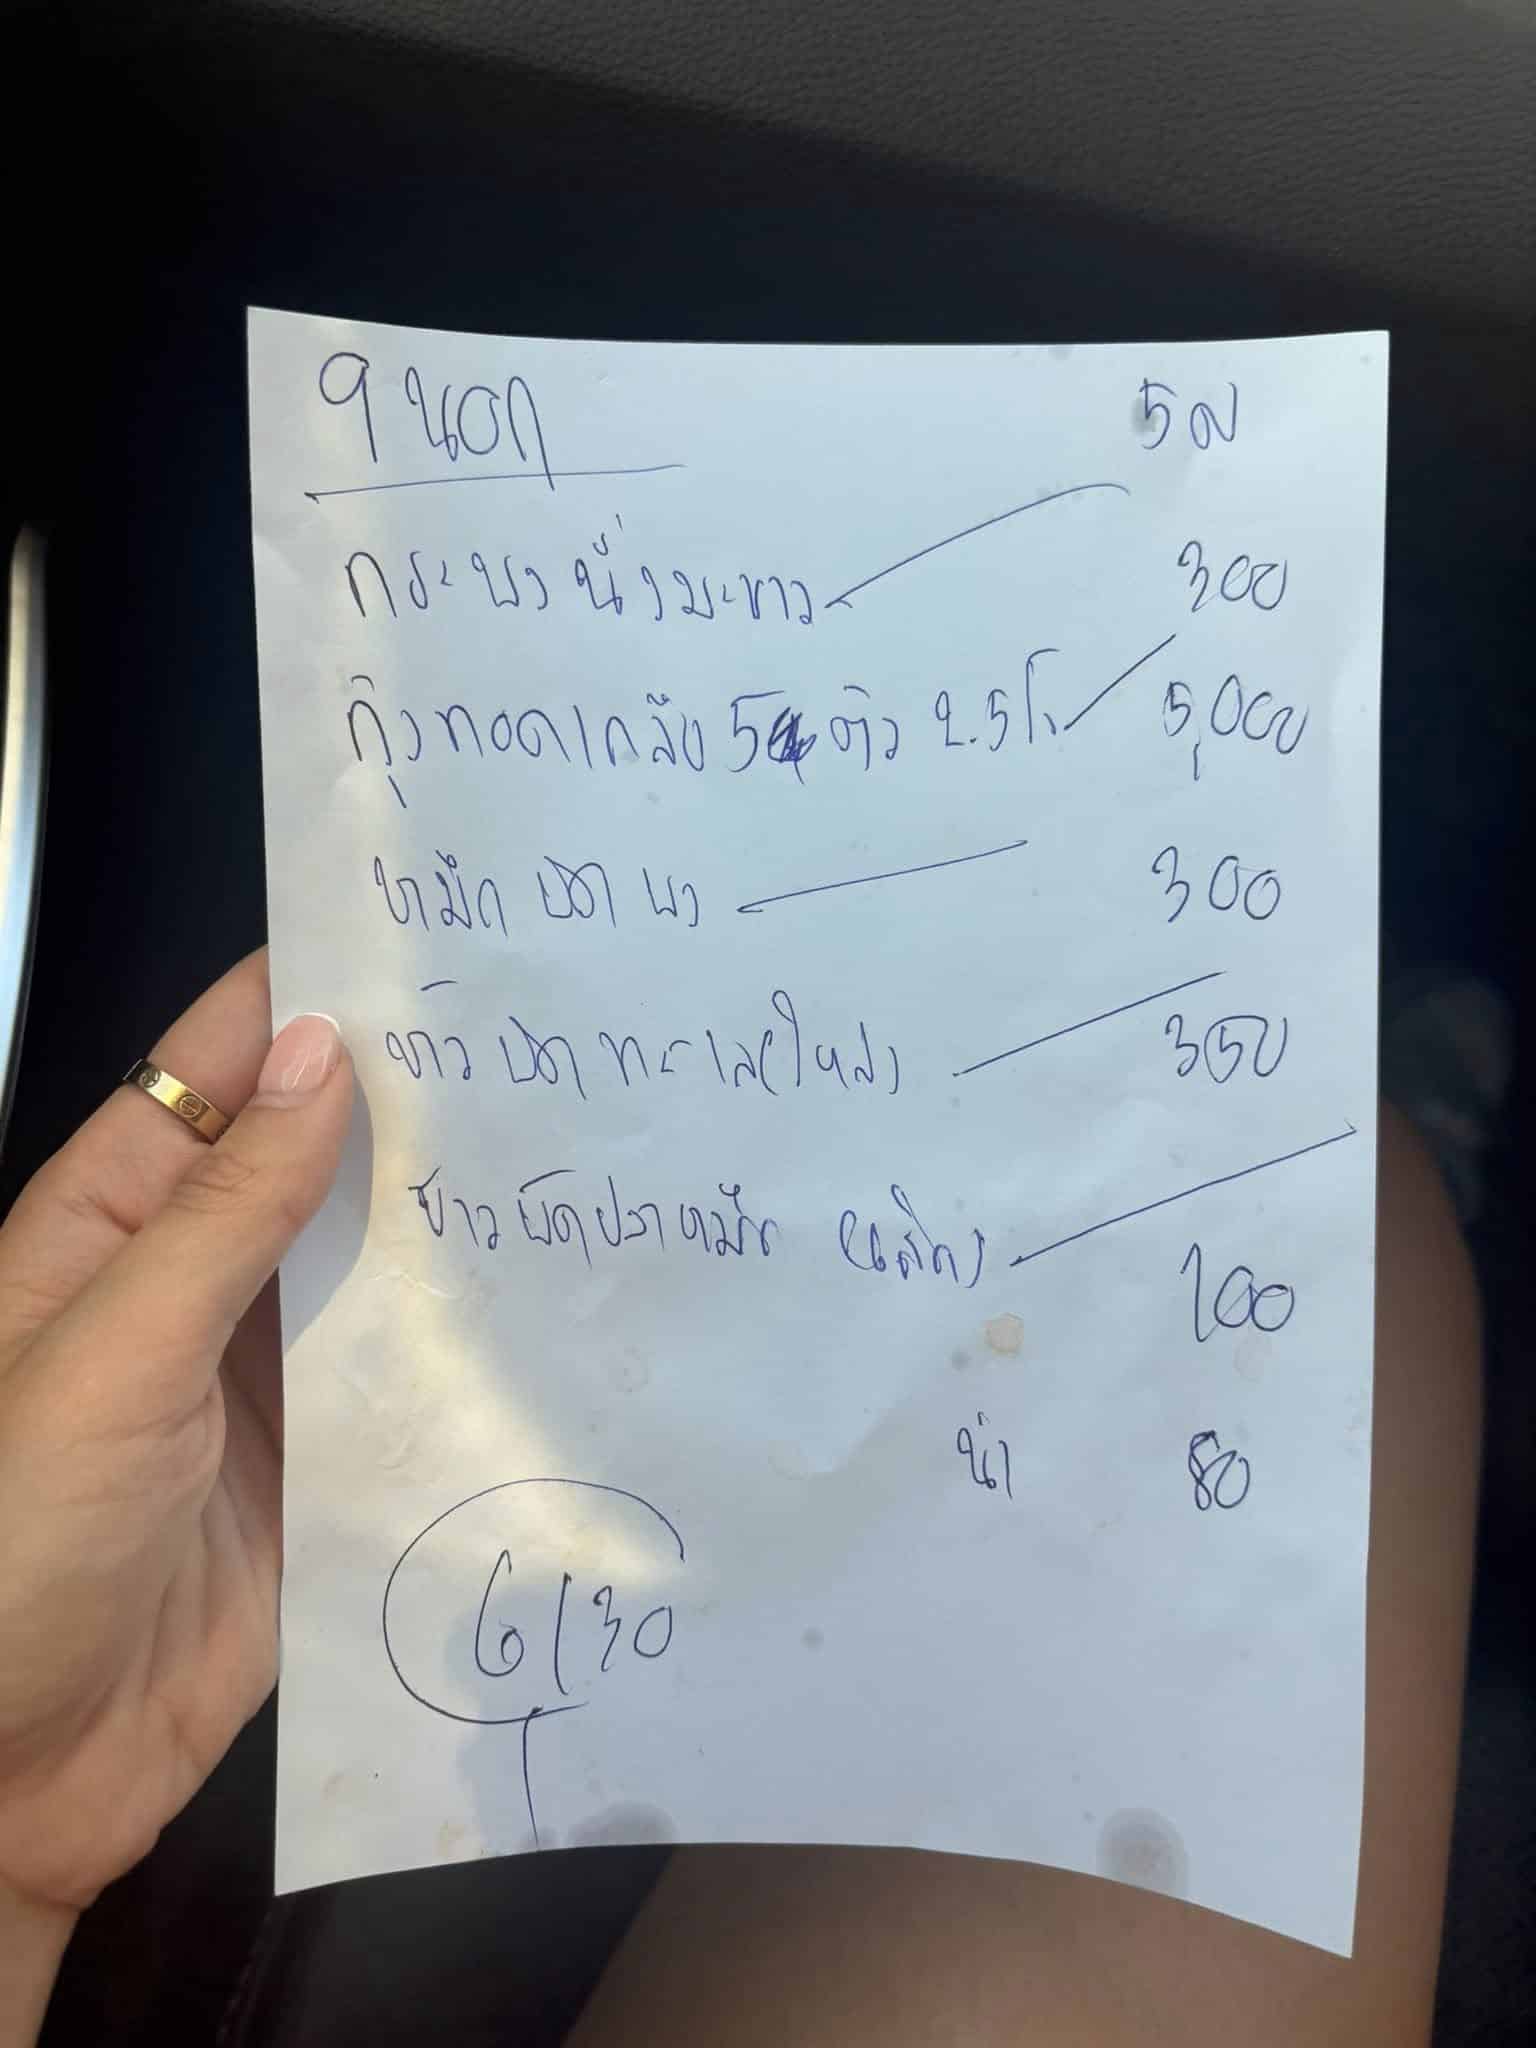 9 นอก 5 ผ
กระพง นึ่งมะนาว 300
กุ้งทอดเกลือ 5 ตัว 2.5 โล 5,000
หมึก ผัด ผง 300
ข้าว ผัด ทะเล (ใหญ่) 350
ข้าวผัดปลาหมึก (เล็ก) 100
น้ำ 80
6130